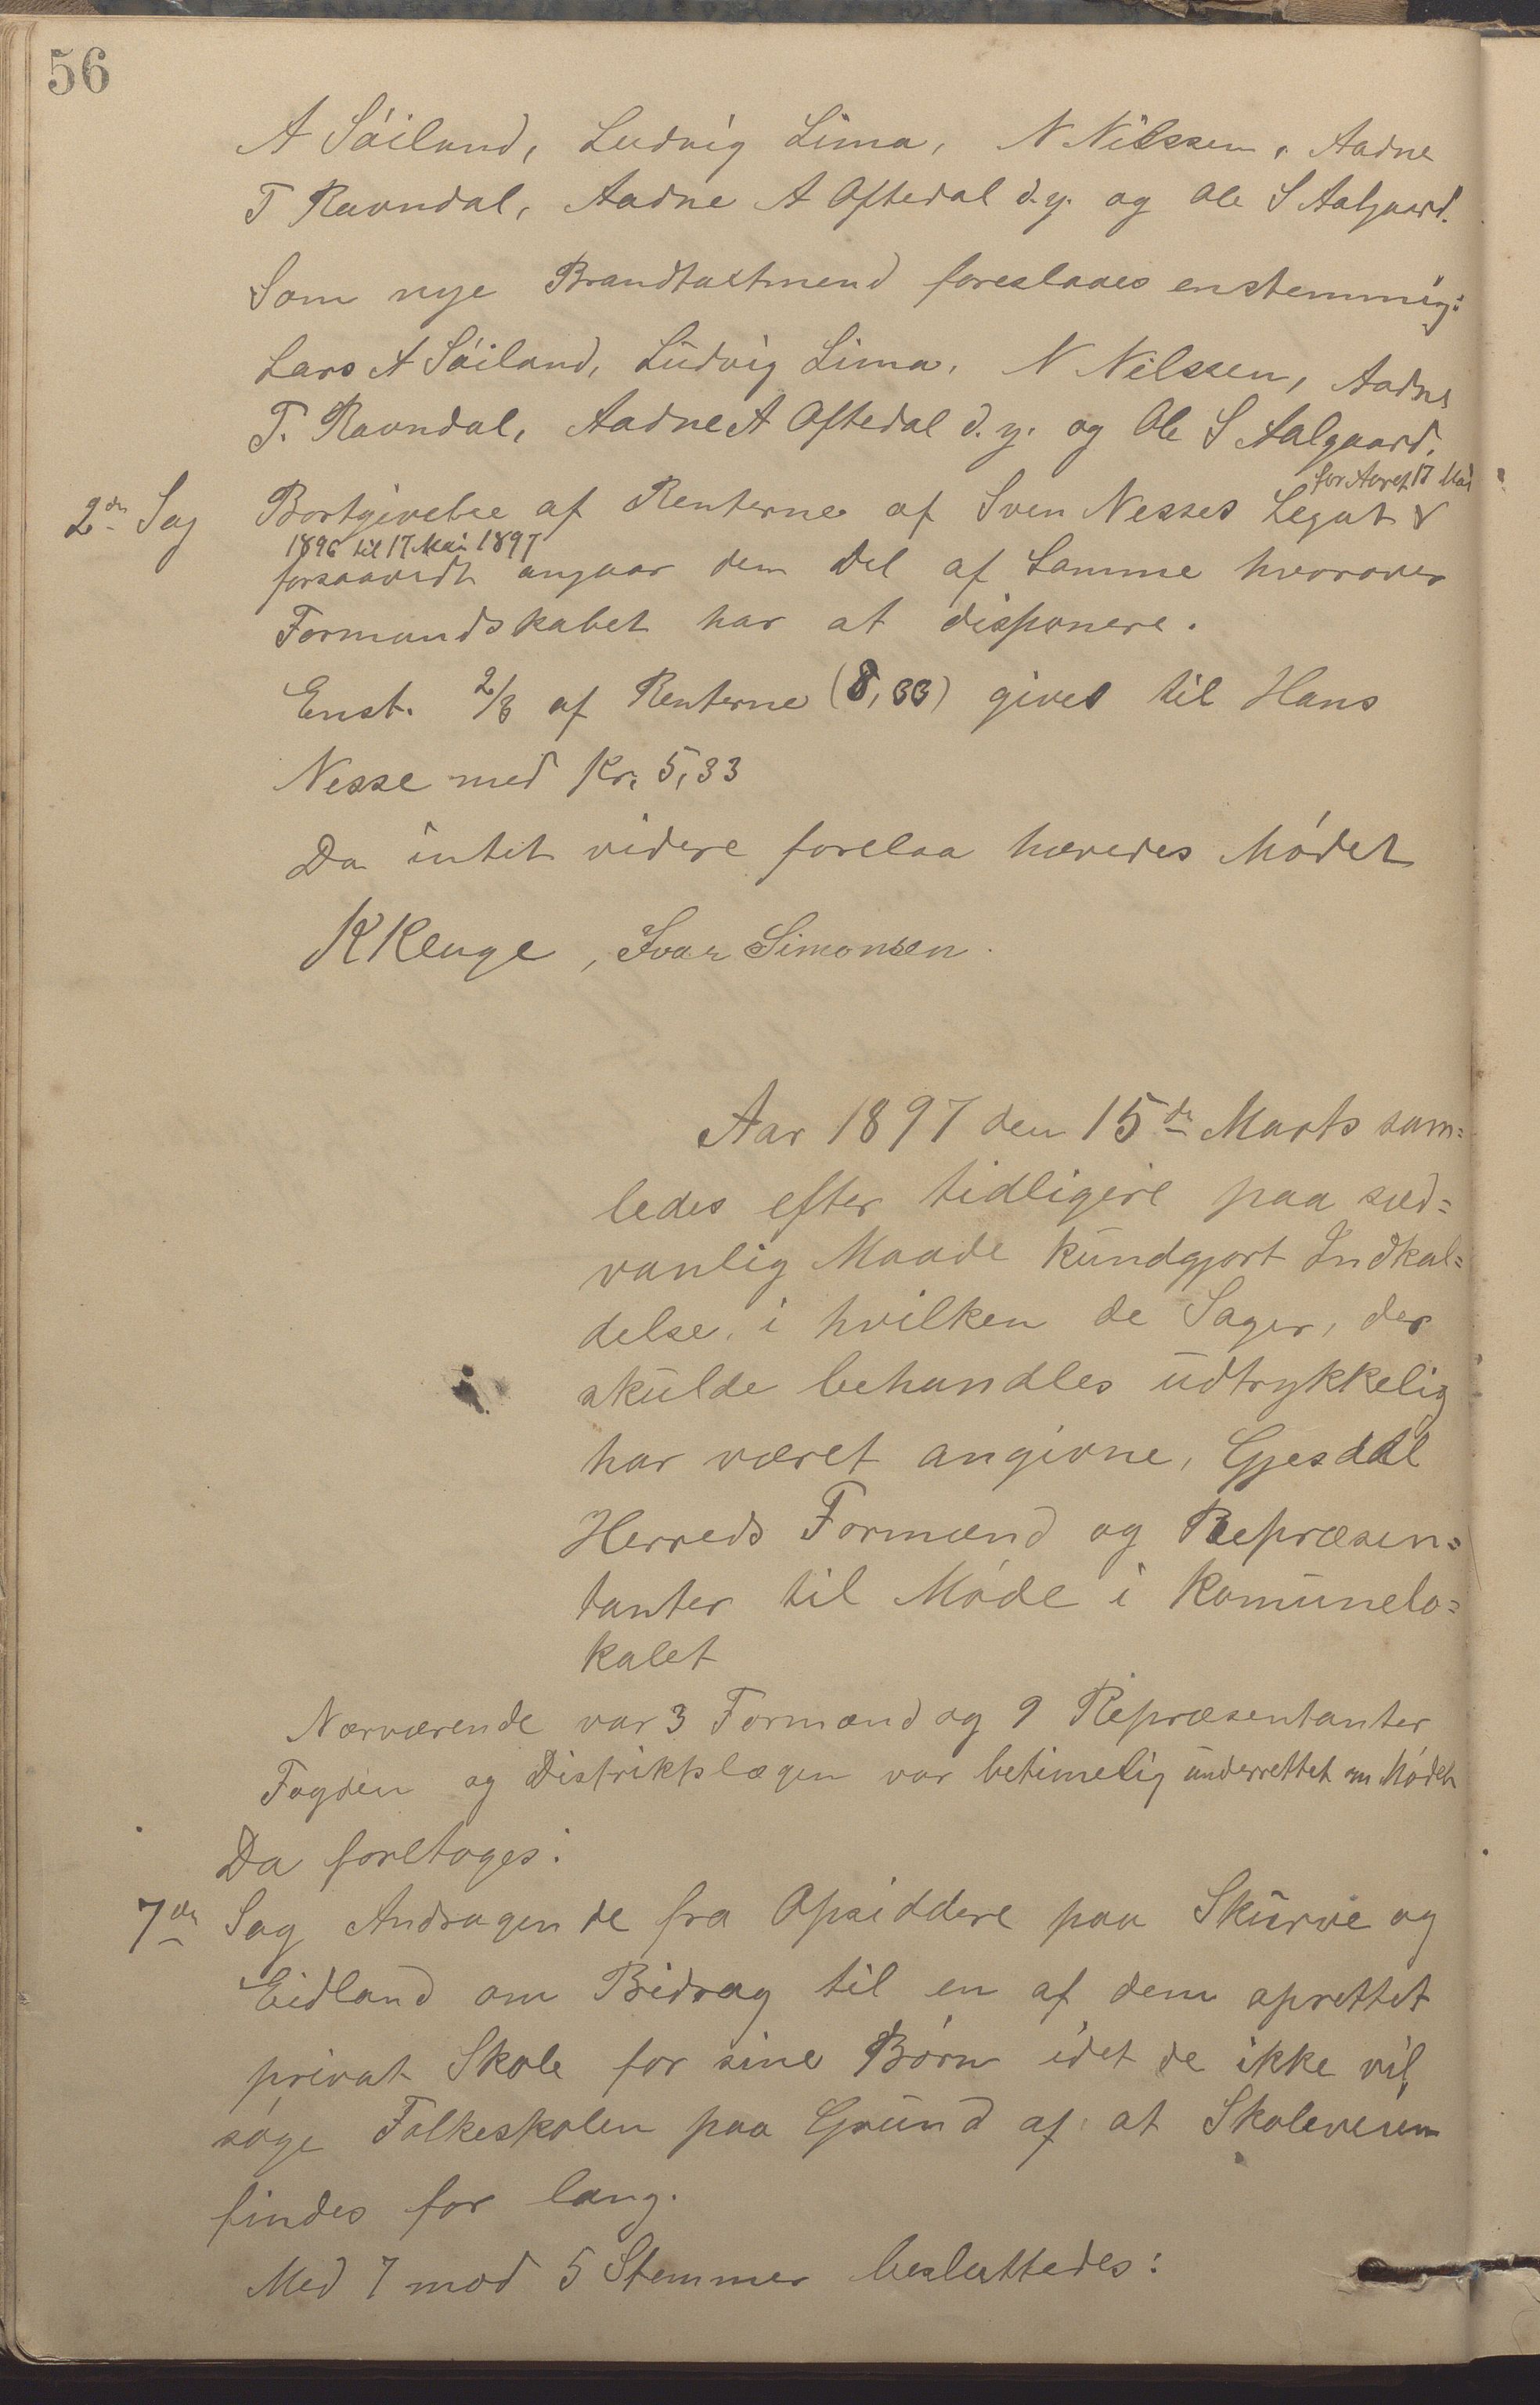 56
A Söiland, Ludvig Lima, N Nilssen, Aadne
T Ravndal, Aadne A Oftedal d.y. og Ole S Aalgaard.
Som nye Brandtaxtmend foreslaaes enstemmig:
Lars A Söiland, Ludvig Lima, N Nilssen, Aadne
T. Ravndal, Aadne A Oftedal d.y. og Ole S Aalgaard.
for Aaret 17 Mai
2den Sag Bortgivelse af Renterne af Sven Nesses Legat
1896 til 17 Mai 1897
forsaavidt angaar den Del af Samme hvorover
Formandskabet har at disponere.
Enst. 2/3 af Renterne (8,33) gives til Hans
Nesse med Kr. 5,33
Da intet videre forelaa hævedes Mödet
K Kluge, Ivar Simonsen.
Aar 1897 den 15de Marts sam=
ledes efter tidligere paa sæd=
vanlig Maade kundgjort Indkal=
delse, i hvilken de Sager, der
skulde behandles udtrykkelig
har været angivne, Gjesdal
Herreds Formænd og Repræsen=
tanter til Möde i Komunelo=
kalet
Nærværende var 3 Formænd og 9 Repræsentanter
Fogden og Distriktslægen var betimelig underrettet om Mödet
Da foretoges:
7de Sag Andragende fra Opsiddere paa Skurve og
Eidland om Bidrag til en af dem oprettet
privat Skole for sine Börn idet de ikke vil
söge Folkeskolen paa Grund af at Skoleveien
findes for lang.
Med 7 mod 5 Stemmer besluttedes: